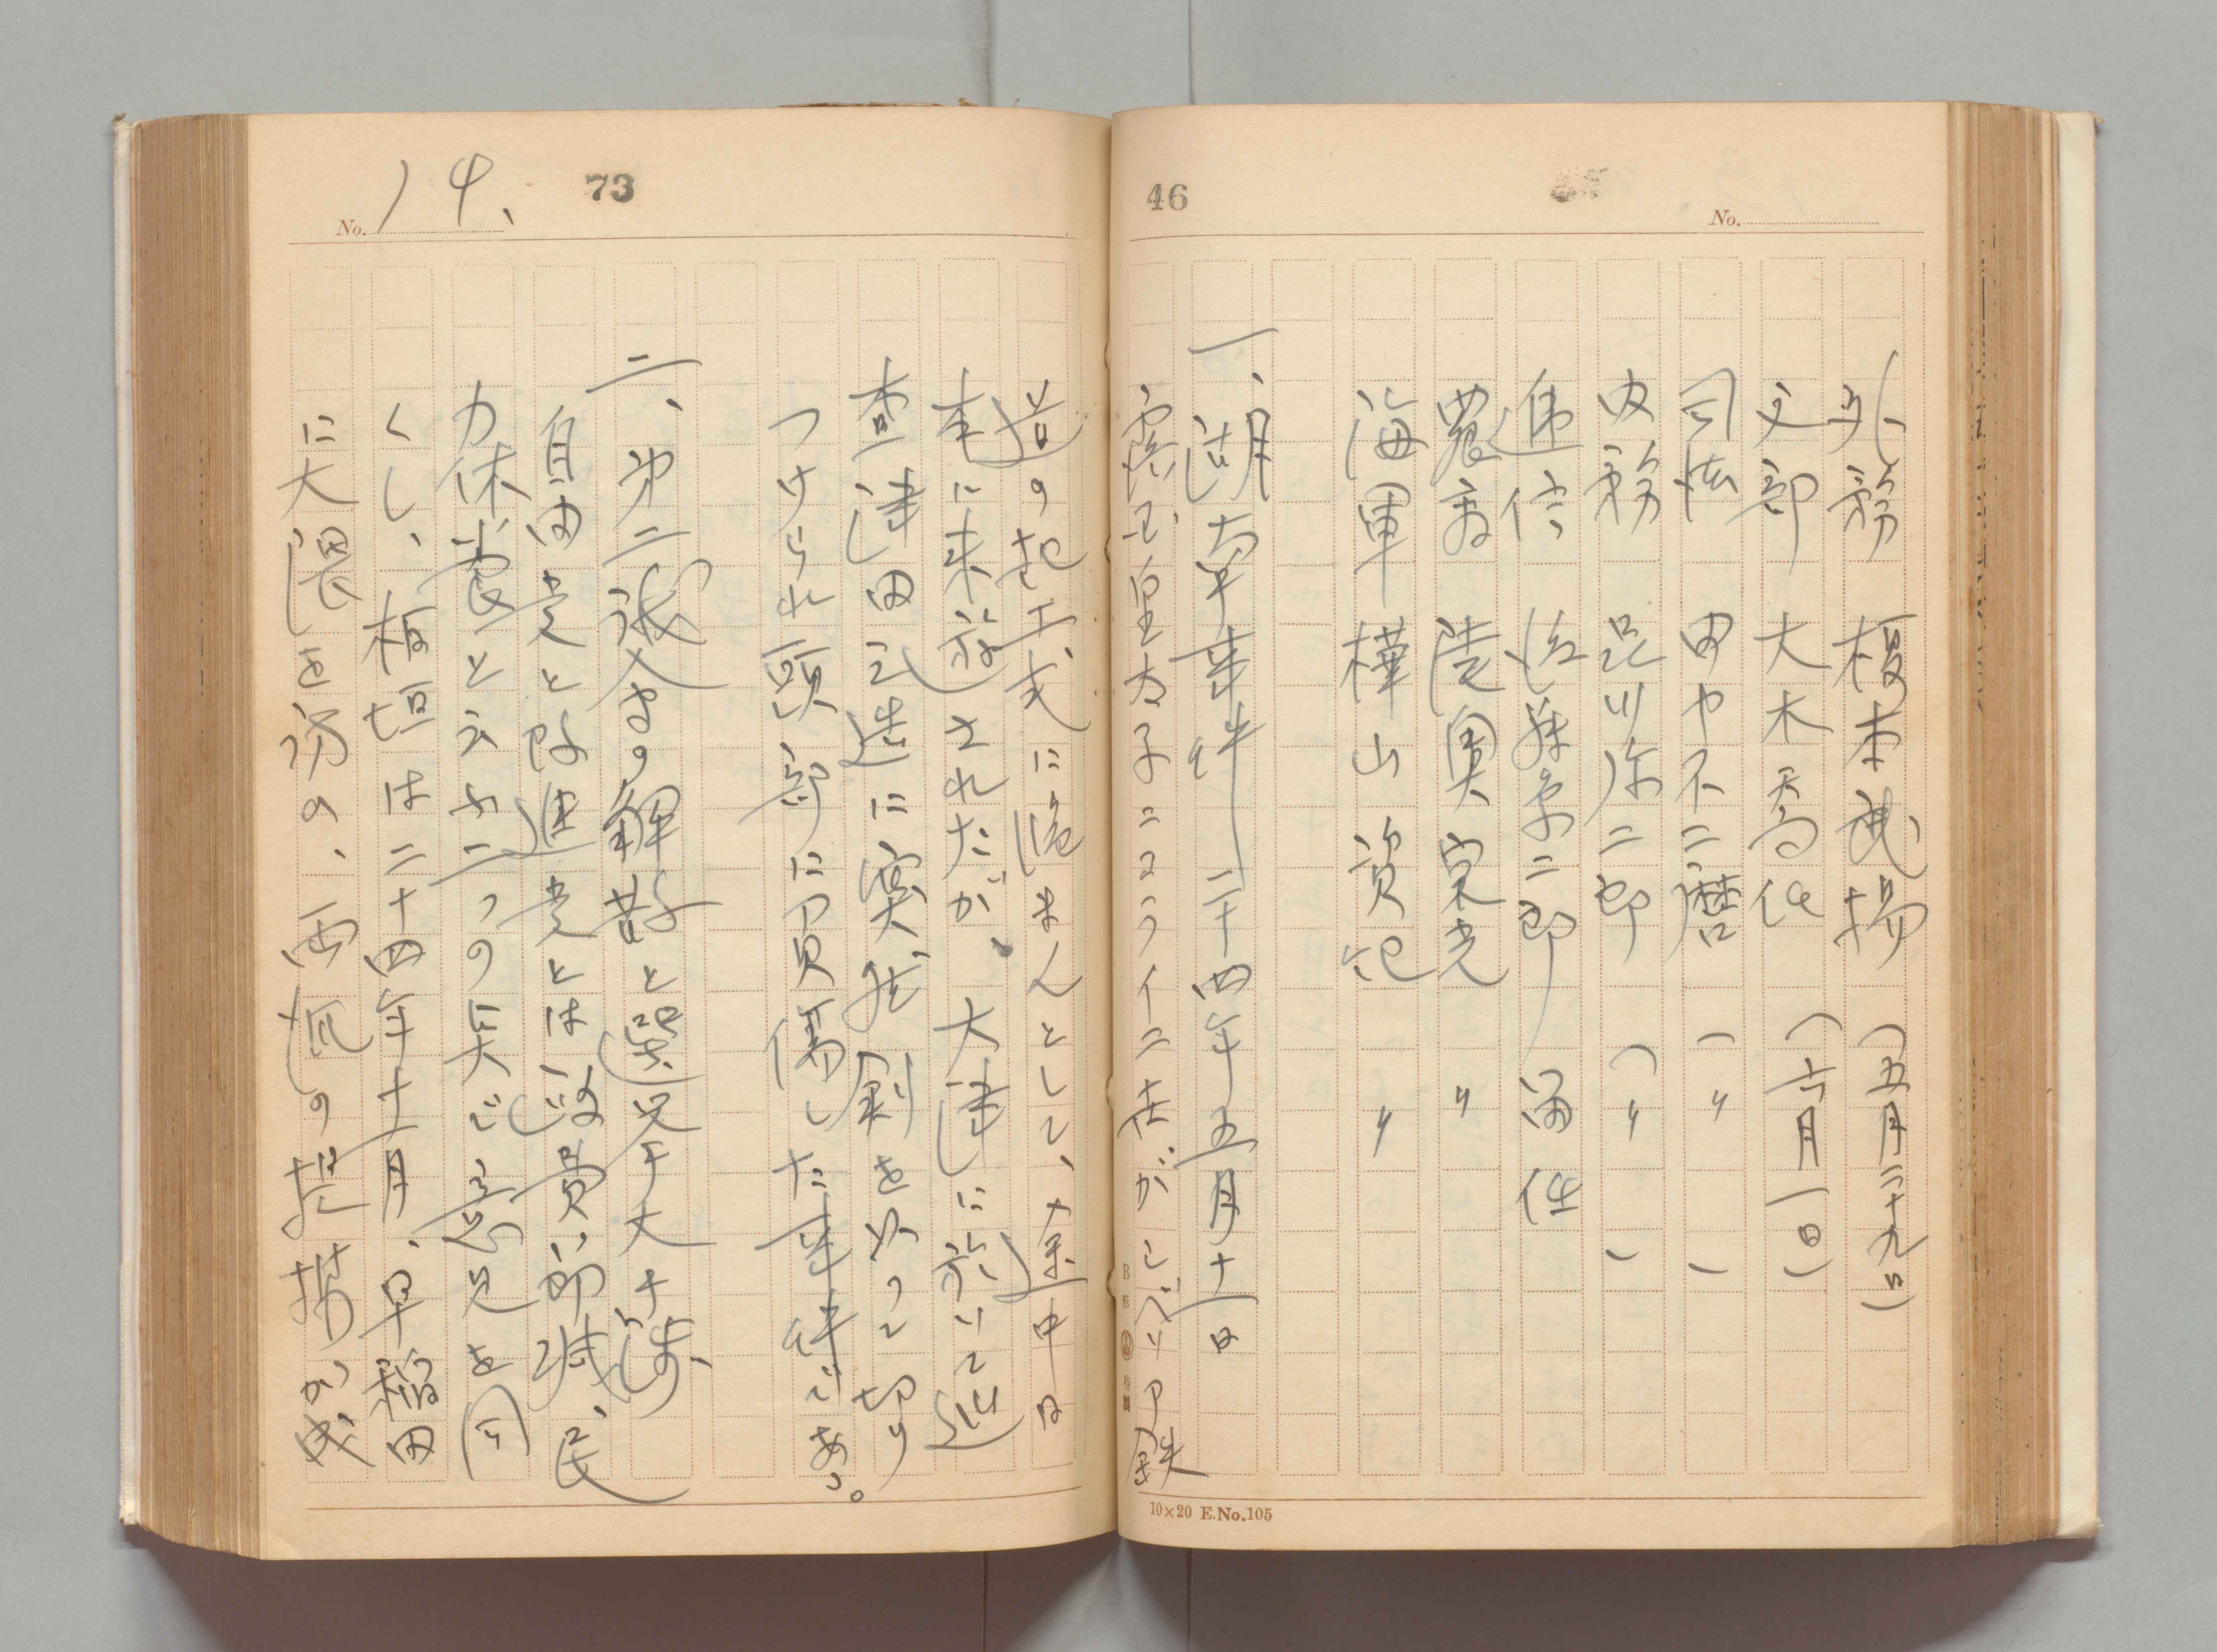 46
No.
外務 榎本武揚 (五月二十九日)
文部 大木喬任 (六月一日)
司法 田中不二麿 (〃)
内務 品川弥二郎 (〃)
逓信 後藤象二郎 留任
農商 陸奥宗光 〃
海軍 樺山資紀 〃
一、湖南事件 二十四年五月十一日
露国皇太子ニコライ二世がシベリア鉄
10×20 E.No.105
73
No. 14.
道の起工式に臨まんとして、途中日
本に来遊されたが、大津に於いて巡
査津田三造に突然剣を以つて切り
つけられ頭部に負傷した事件である。
二、第二議会の解散と選挙大干渉
自由党と改進党とは政費節減、民
力休養と云ふ二つの点で意見を同
くし、板垣は二十四年十一月、早稲田
に大隈を訪ひ、両党の提携が成